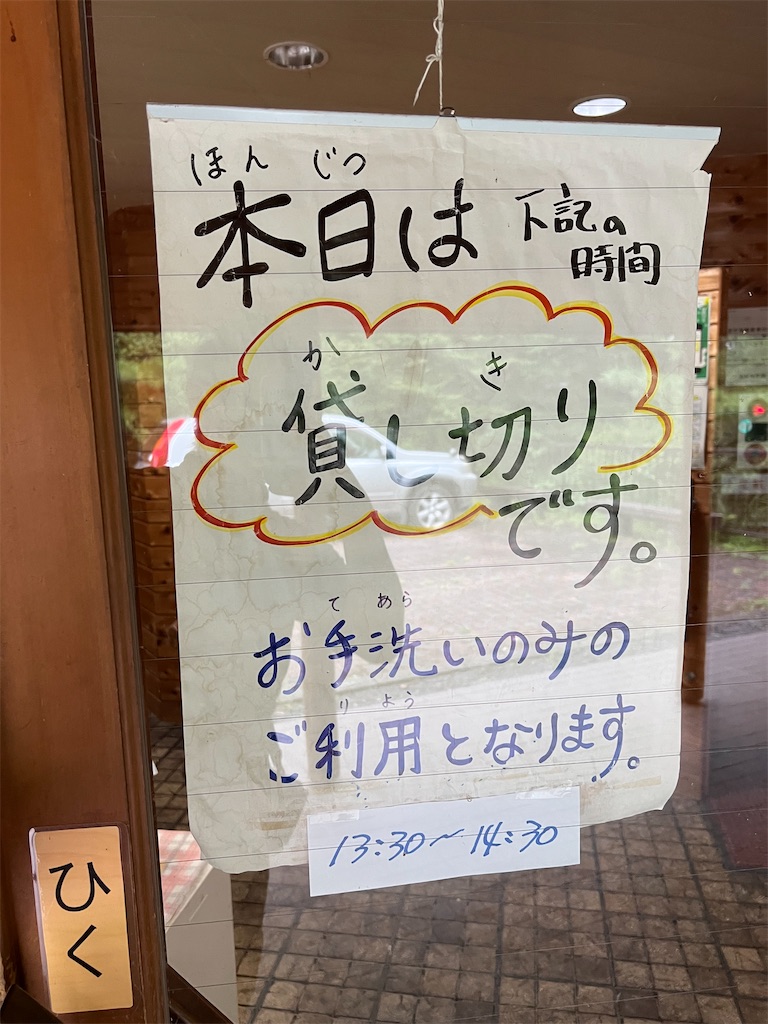 ほん じつ
本日は 下記の
時間
か き
貸し切り
です。
て あら
お手洗いのみの
り よう
ご利用となります。
13:30～14:30
ひく